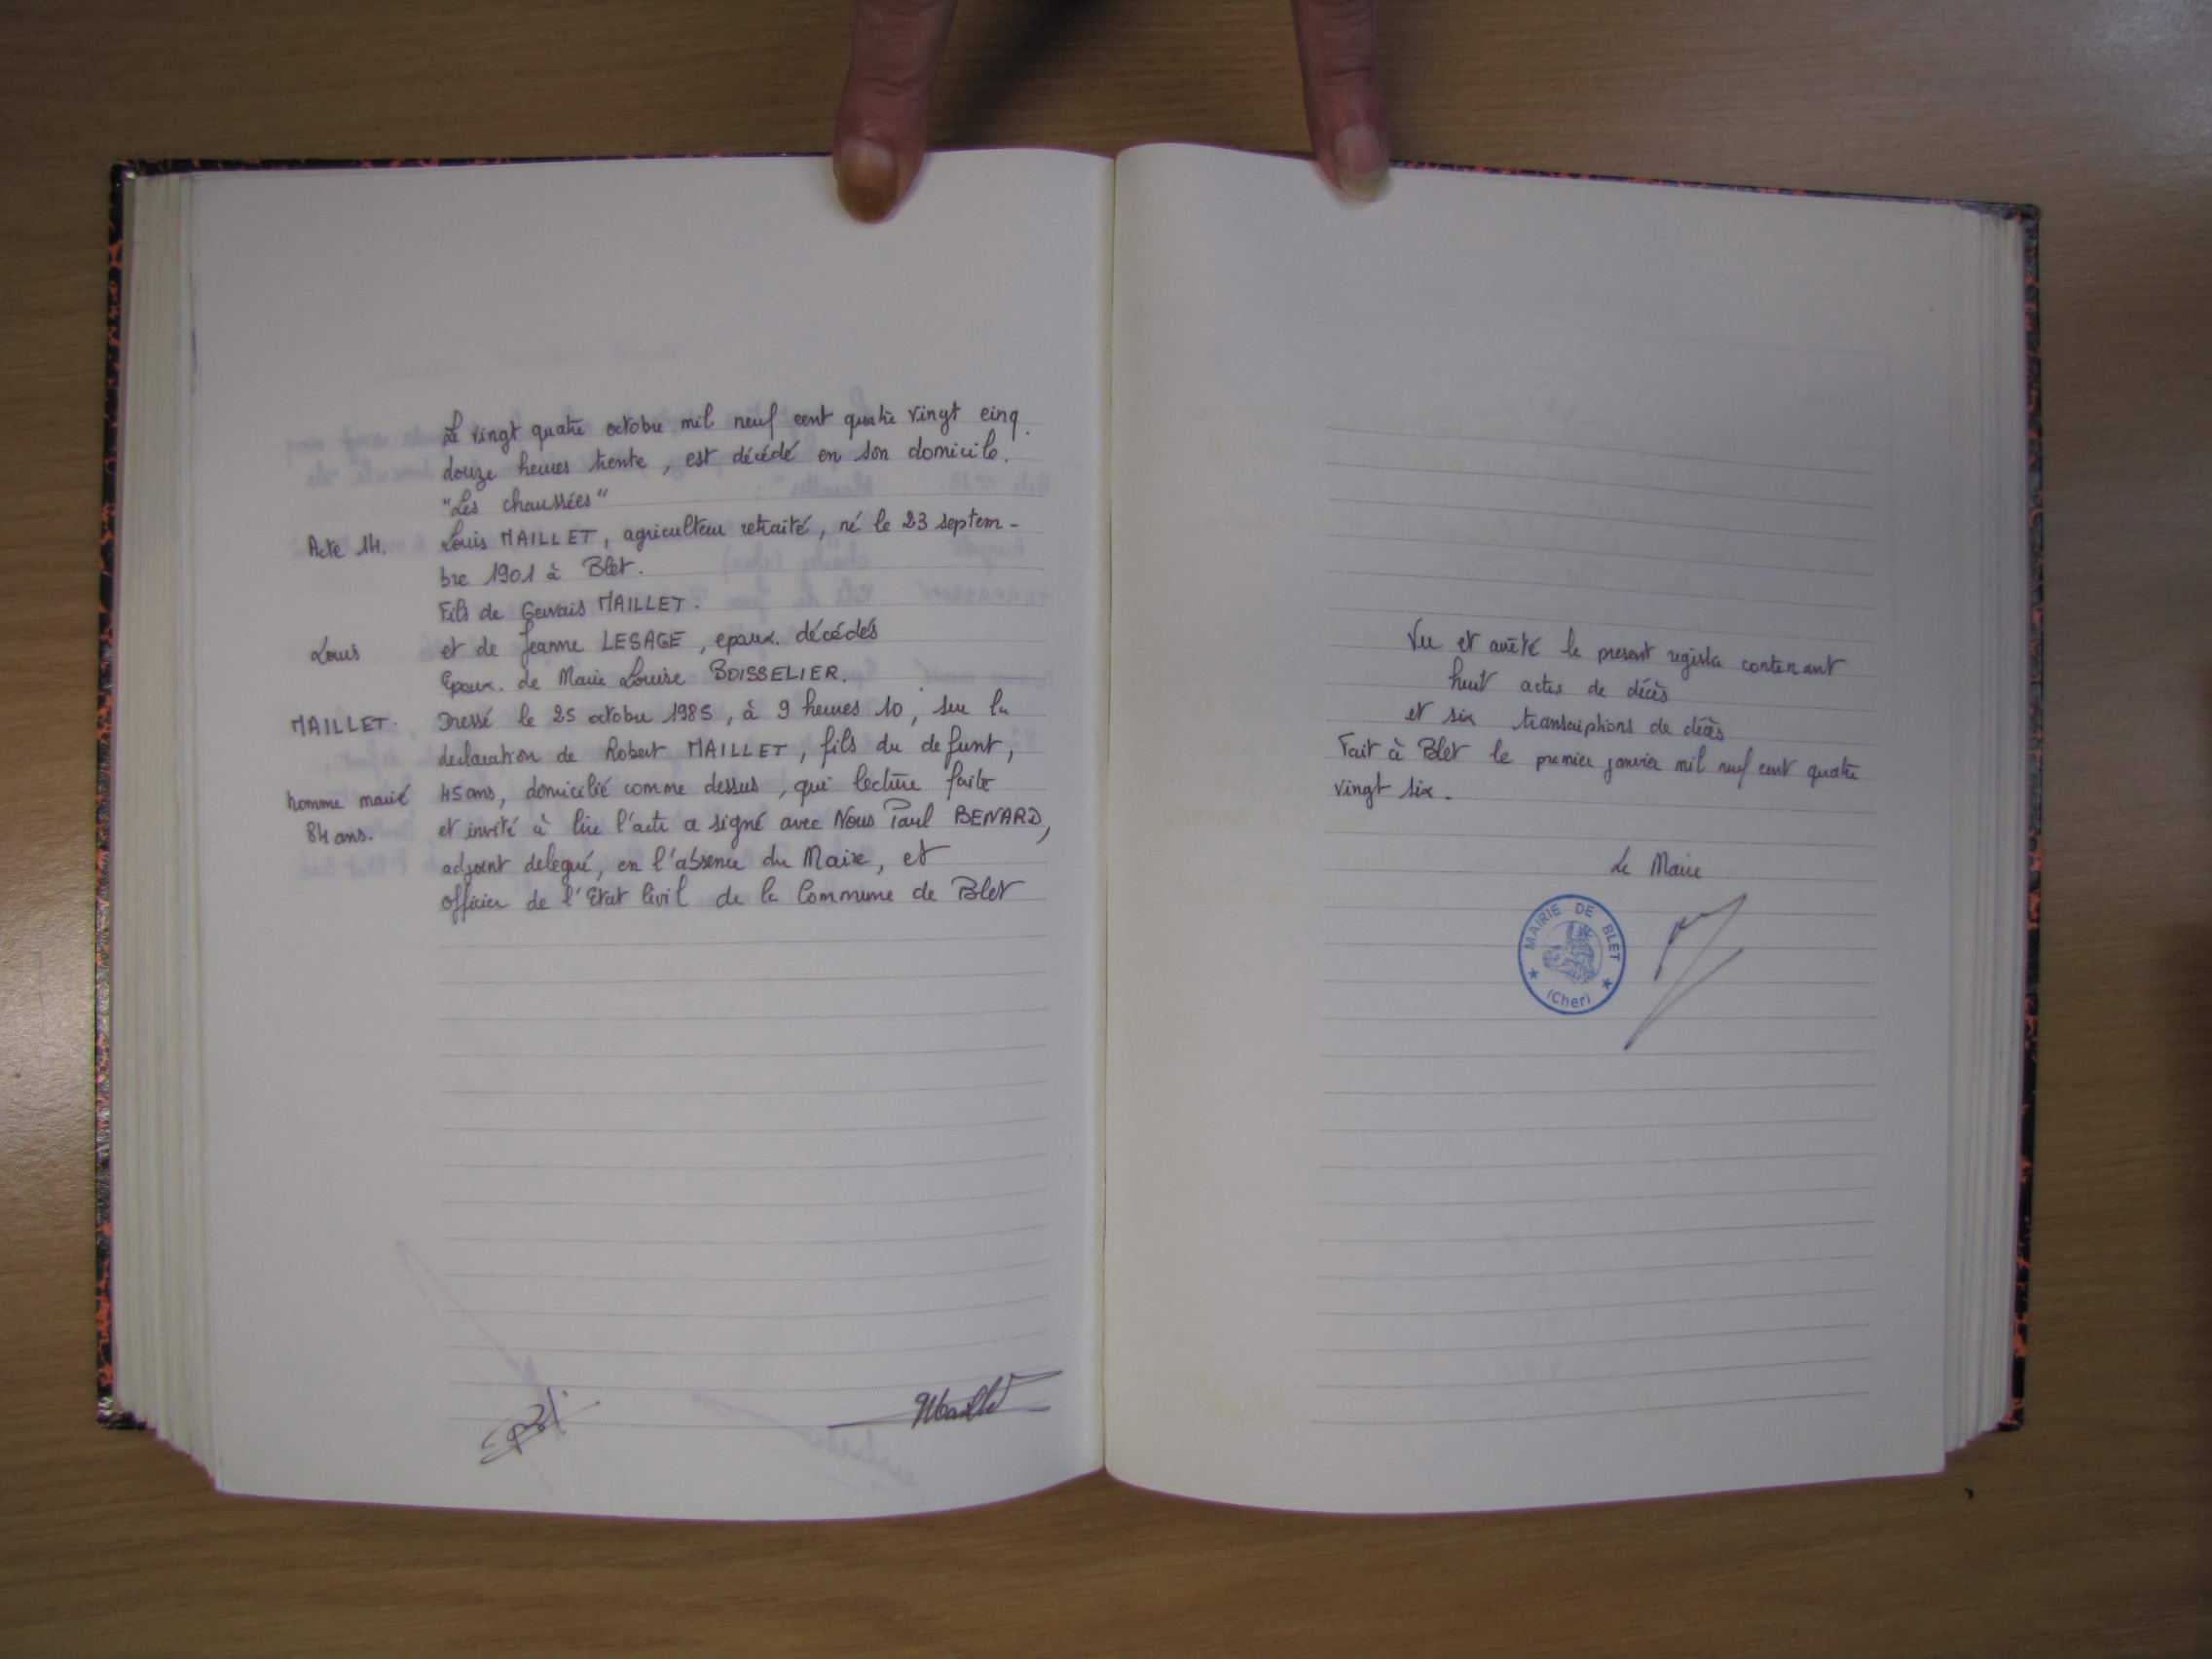 Le vingt quatre octobre mil neuf cent quatre vingt cinq.
douze heures trente, est décédé en son domicile.
"Les chaussées"
Acte 14.
Louis MAILLET, agriculteur retraité, né le 23 septem-
bre 1901 à Blet.
Fils de Gervais MAILLET.
Louis
et de Jeanne LESAGE, epoux. décédés
Epoux. de Marie Louise BOISSELIER.
MAILLET.
Dressé le 25 octobre 1985, à 9 heures 10, sur la
declaration de Robert MAILLET, fils du defunt,
homme marié
45 ans, domicilié comme dessus, qui lecture faite
84 ans.
et invité à lire l'acte a signé avec Nous Paul BENARD,
adjoint delegué, en l'absence du Maire, et
Officier de l'Etat Civil de la Commune de Blet
Vu et arrêté le present registre contenant
huit actes de décès
et six transcriptions de décès
Fait à Blet le premier janvier mil neuf cent quatre
vingt six.
Le Maire
MAIRIE DE BLET
(Cher)